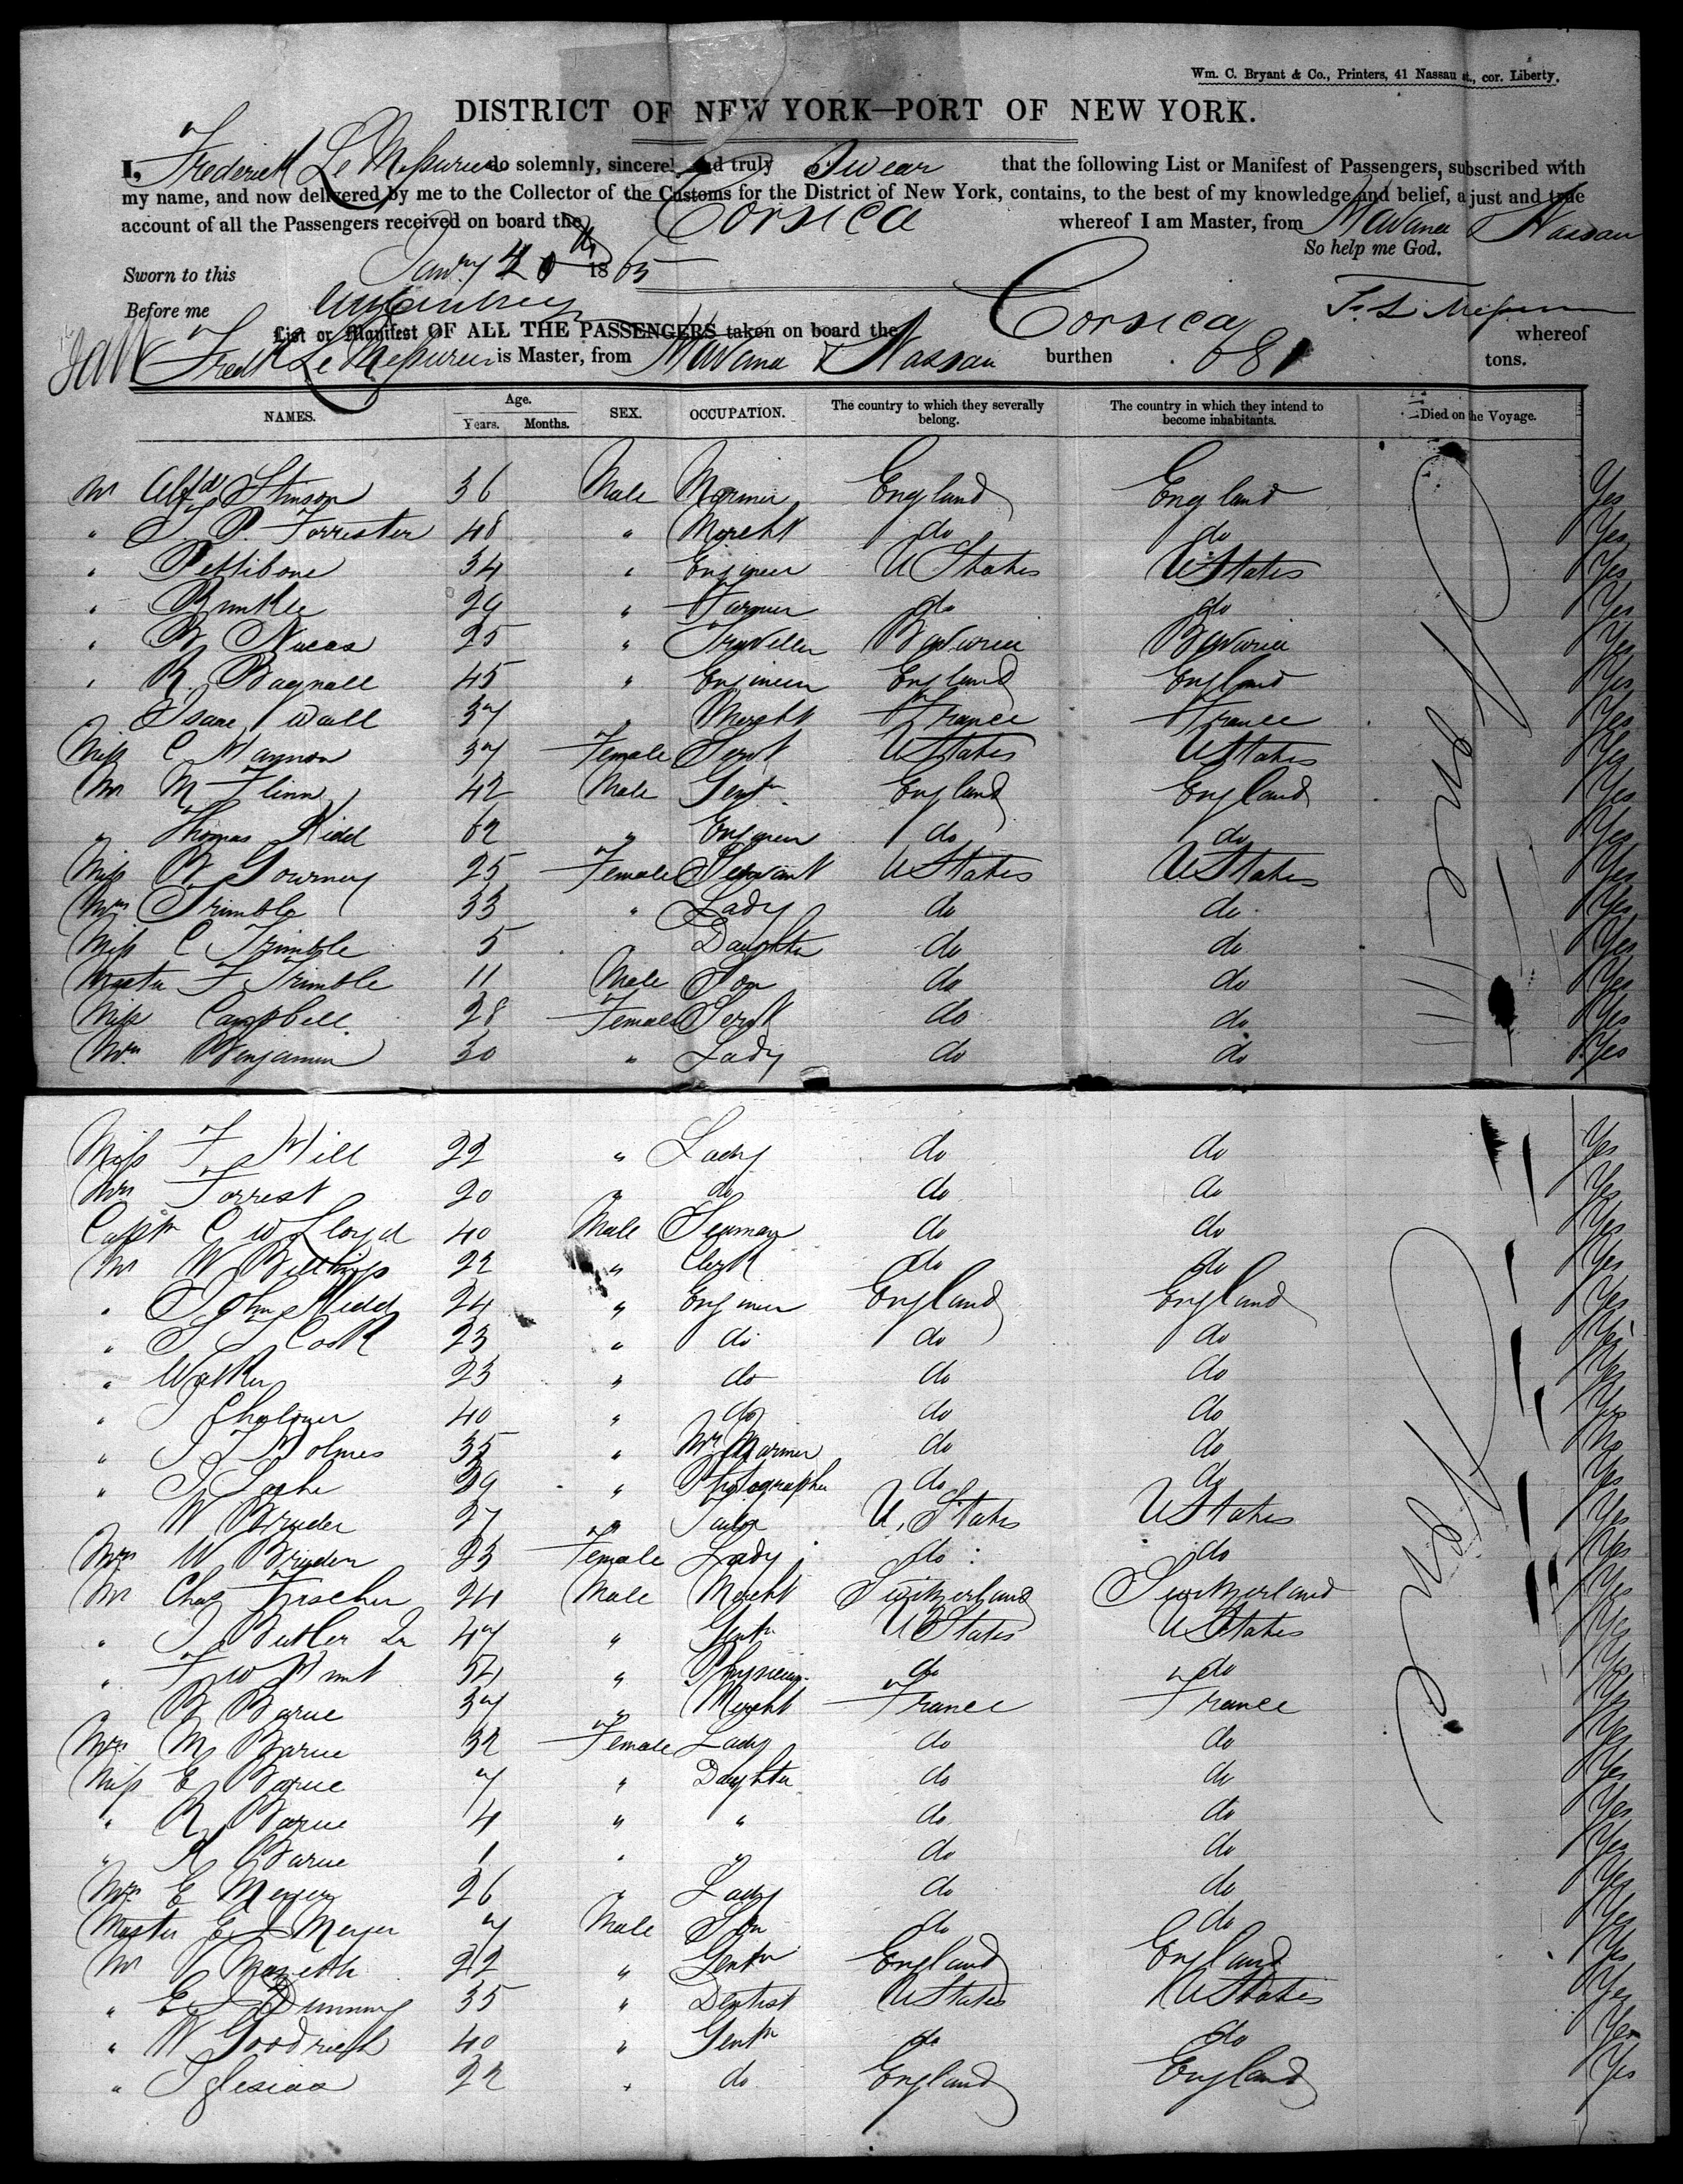 Wm. C. Bryant & Co., Printers, 41 Nassau st., cor. Liberty.
DISTRICT OF NEW YORK—PORT OF NEW YORK.
I, Frederick Le Messurier do solemnly, sincerely and truly Swear that the following List or Manifest of Passengers, subscribed with
my name, and now delivered by me to the Collector of the Customs for the District of New York, contains, to the best of my knowledge and belief, a just and true
account of all the Passengers received on board the Corsica whereof I am Master, from Havana & Nassau
So help me God.
Sworn to this Jany 1865
Before me
List or Manifest OF ALL THE PASSENGERS taken on board the Corsica whereof
Fredk Le Messurier is Master, from Havana & Nassau burthen tons.
NAMES. Age. Years. Months. SEX. OCCUPATION. The country to which they severally belong. The country in which they intend to become inhabitants. Died on the Voyage.
Mr Alfd Stinson 36 Male Mariner England England Yes
" P. Forrester 48 " Mercht do do Yes
" Pettibone 34 " Engineer U States U States Yes
" 29 " Farmer do do Yes
" 25 " Traveller Bavaria Bavaria Yes
" R. Bagnall 45 " Engineer England England Yes
Isaac Wall 37 " Mercht France France Yes
Miss C Hannon 37 Female Servt U States U States Yes
Mr M Flinn 42 Male Gentn England England Yes
" Thomas Kidd 62 " Engineer do do Yes
Miss 25 Female Servant U States U States Yes
Mrs Trimble 33 " Lady do do Yes
Miss C Trimble 5 Daughter do do Yes
Master F Trimble 11 Male Son do do Yes
Miss Campbell 28 Female Servt do do Yes
Mrs Benjamin 30 " Lady do do Yes
Miss F Hill 22 " Lady do do Yes
Mrs Forrest 20 " do do do Yes
Captn C W Lloyd 40 Male Seaman do do Yes
Mr W Billings 22 " Clerk do do Yes
" John Kidd 24 " Engineer England England Yes
" Cook 23 " do do do Yes
" Walker 23 " do do do Yes
" 40 " do do do Yes
" Holmes 35 " Mr Mariner do do No
" 29 " Photographer do do Yes
W 27 " Tailor U. States U States Yes
Mrs W 23 Female Lady do do Yes
Mr Chas Fischer 24 Male Mercht Switzerland Switzerland Yes
" Butler 47 " Gentn U States U States Yes
" F W Hunt 54 " Physician do do Yes
" B Barue 37 " Mercht France France Yes
Mrs M Barue 32 Female Lady do do Yes
Miss E Barue 7 " Daughter do do Yes
" R Barue 4 " " do do Yes
" Barue 1 " " do do Yes
Mrs E Meyer 26 " Lady do do Yes
Master E J Meyer 7 Male Son do do Yes
Mr 22 " Gentn England England Yes
" E J Dunning 35 " Dentist U States U States Yes
" W Goodrich 40 " Gentn do do Yes
" Iglesias 22 " do England England Yes